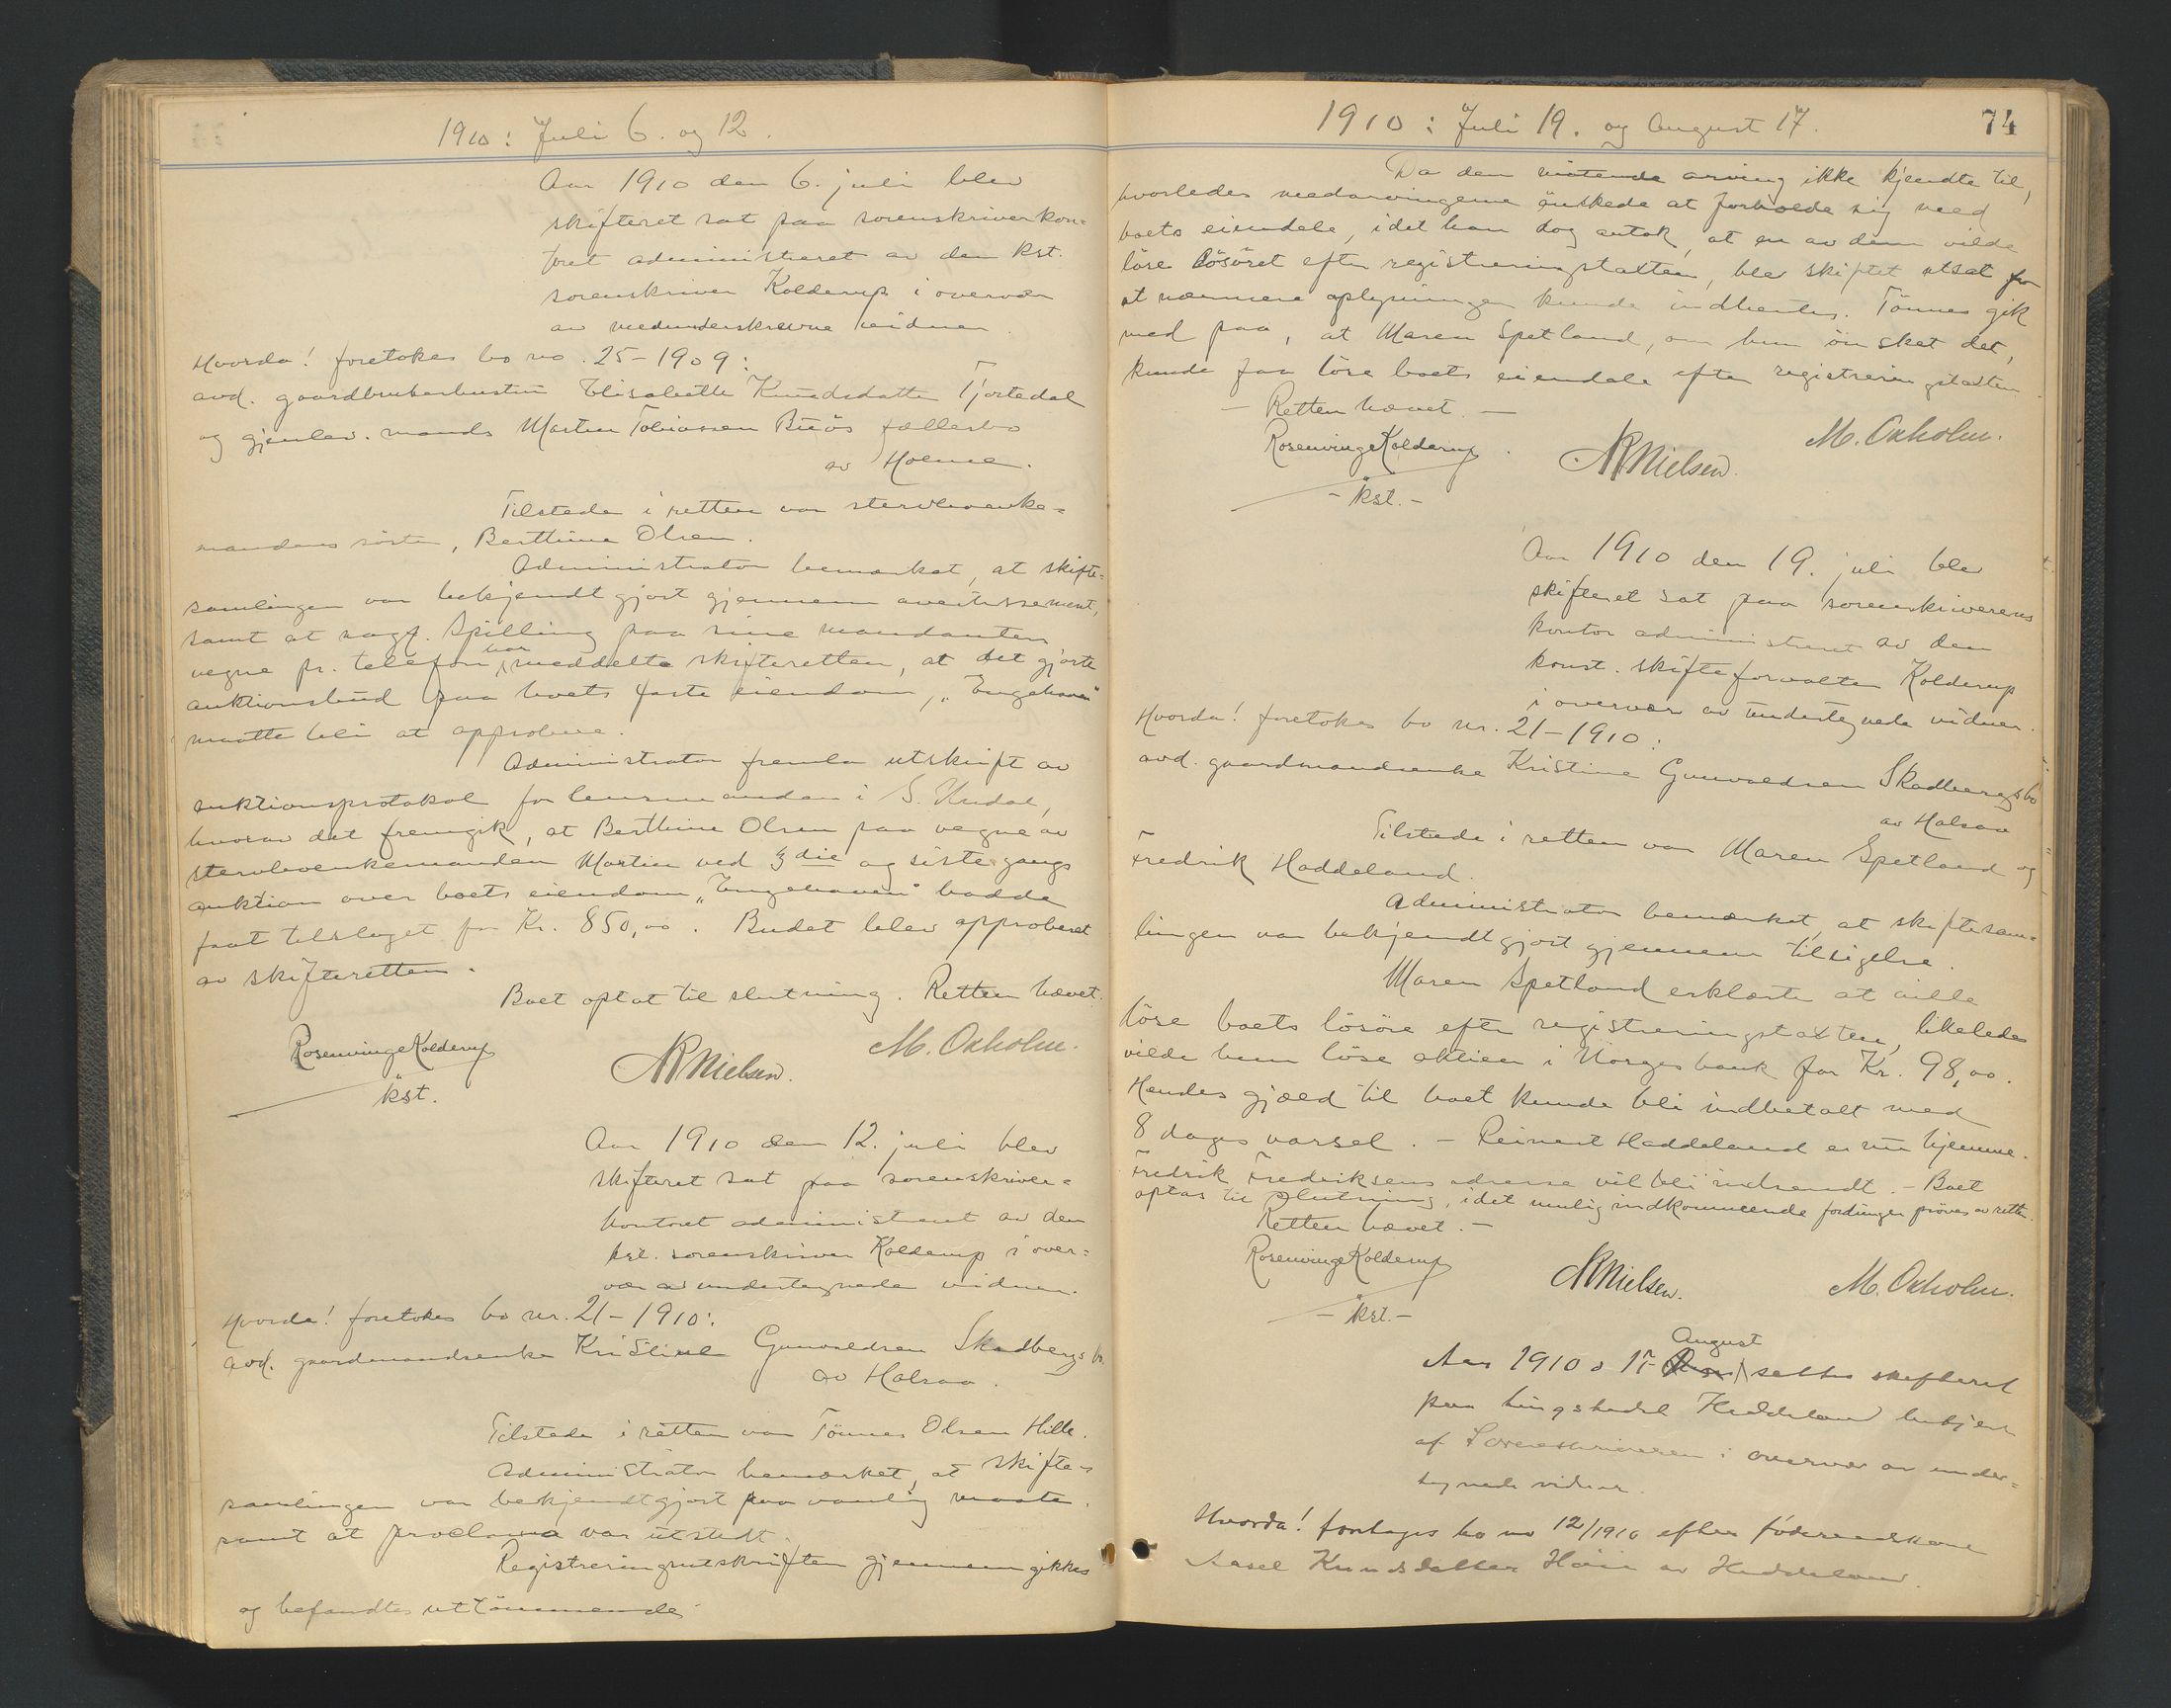 1910: Juli 6. og 12.
Aar 1910 den 6. juli blev
skifteret sat paa sorenskriverkon-
toret administreret av den kst.
sorenskriver Kolderup i overvær
av medunderskrevne vidner.
Hvorda! foretokes bo no. 25-1909:
avd. gaardbrukerhustru Elisabeth Knudsdatter Tjortedal
og gjenlev. mands Martin Tobiassen Buøs fællesbo
av Holme.
Tilstede i retten var stervboenke-
mandens søster, Berthine Olsen.
Administrator bemerket, at skifte-
samlingen var bekjendtgjort gjennem avertissement,
samt at sagf. Spilling paa sine mandanters
vegne pr. telefon har meddelte skifteretten, at det gjorte
auktionsbud paa boets faste eiendom, "Engehaven"
maatte bli at approbere.
Administrator fremla utskrift av
auktionsprotokol for lensmanden i S. Undal,
hvorav det fremgik, at Berthine Olsen paa vegne av
stervboenkemanden Martin ved 3die og siste gangs
auktion over boets eiendom "Engehaven" hadde
faat tilslaget for Kr. 850,00. Budet blev approberet
av skifteretten.
Boet optat til slutning. Retten hævet.
Rosenvinge Kolderup
kst.
NRNielsen.
M. Oxholm.
Aar 1910 den 12. juli blev
skifteret sat paa sorenskriver-
kontoret administreret av den
kst. sorenskriver Kolderup i over-
vær av undertegnede vidner.
Hvorda! foretokes bo nr. 21-1910:
avd. gaardmandsenke Kristine Gunvaldsen Skadbergs bo
av Halsaa.
Tilstede i retten var Tønnes Olsen Hille.
Administrator bemerket, at skifte-
samlingen var bekjendtgjort paa vanlig maate.
samt at proclama var utstedt.
Registreringsutskriften gjennemgikkes
og befandtes uttømmende.
1910: Juli 19. og August 17.
74
Da den møtende arving ikke kjendte til,
hvorledes medarvingerne ønskede at forholde sig med
boets eiendele, idet han dog antok, at en av dem vilde
løse løsøret efter registreringstaksten, blev skiftet utsat for
at nærmere oplysninger kunde indhentes. Tønnes gik
med paa, at Maren Spetland, om hun ønsket det,
kunde faa løse boets eiendele efter registreringstaksten.
- Retten hævet. -
Rosenvinge Kolderup
- kst. -
NRNielsen.
M. Oxholm.
Aar 1910 den 19. juli blev
skifteret sat paa sorenskriverens
kontor administreret av den
konst. skifteforvalter Kolderup
i overvær av undertegnede vidner.
Hvorda! foretokes bo nr. 21-1910:
avd. gaardmandsenke Kristine Gunvaldsen Skadbergs bo
av Halsaa
Tilstede i retten var Maren Spetland og
Fredrik Haddeland.
Administrator bemerket, at skiftesam-
lingen var bekjendtgjort gjennem tilsigelse.
Maren Spetland erklærte at ville
løse boets løsøre efter registreringstaksten, likeledes
vilde hun løse aktien i Norges bank for Kr. 98,00.
Hendes gjæld til boet kunde bli indbetalt med
8 dages varsel. - Reinert Haddeland er nu hjemme.
Fredrik Fredriksens adresse vil bli indsendt. - Boet
optas til slutning, idet mulig indkommende fordringer prøves av retten.
Retten hævet. -
Rosenvinge Kolderup
- kst. -
NRNielsen.
M. Oxholm.
August
Aar 1910 d 17 settes skifteret
paa tingstedet Heddeland betjent
af Sorenskriveren i overvær av under-
tegnede vidner.
Hvorda! foretages bo no 12/1910 efter føderaadskone
Aasel Knudsdatter Høie av Heddeland.